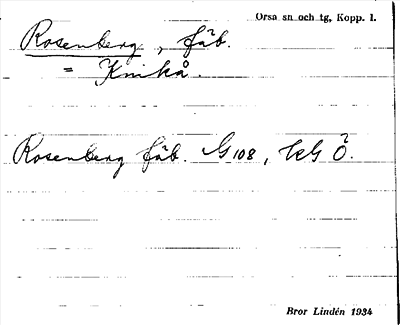 Orsa sn och tg, Kopp. l.
Rosenberg, fäb.
= Knikå.
Rosenberg fäb. G 108, kG Ö.
Bror Lindén 1934